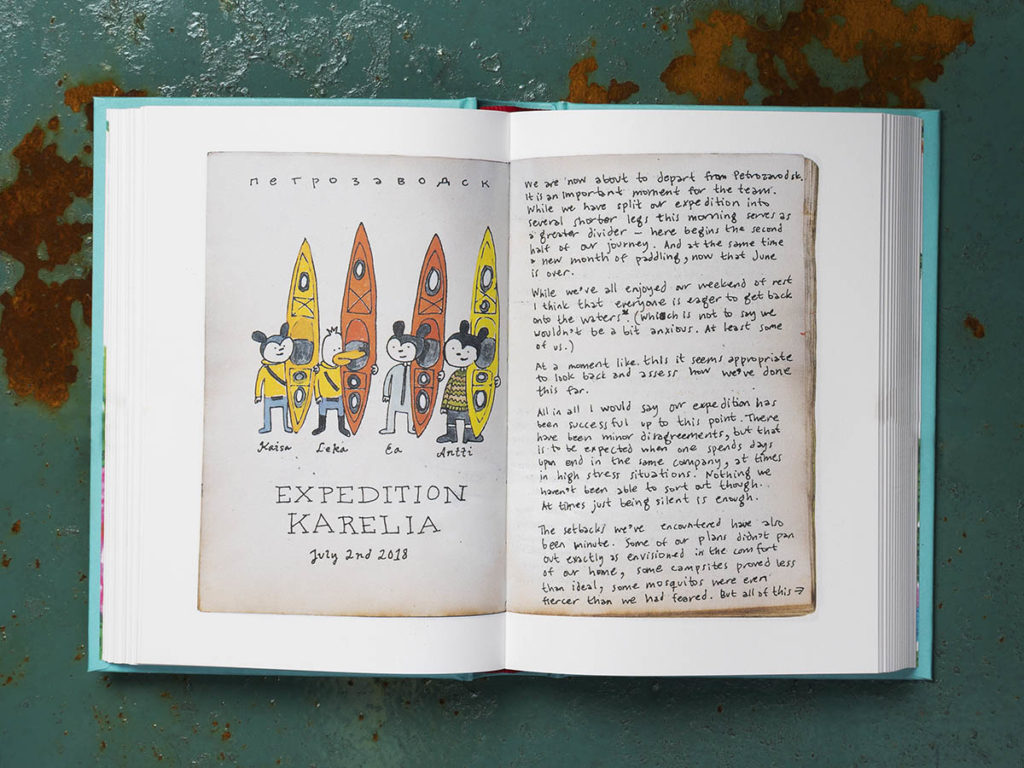 петрозаводск
Kaisa Leka Ea Antti
EXPEDITION
KARELIA
July 2nd 2018
We are now about to depart from Petrozavodsk.
It is an important moment for the team.
While we have split our expedition into
several shorter legs this morning serves as
a greater divider – here begins the second
half of our journey. And at the same time
a new month of paddling, now that June
is over.
While we've all enjoyed our weekend of rest
I think that everyone is eager to get back
onto the waters*. (Which is not to say we
wouldn't be a bit anxious. At least some
of us.)
At a moment like this it seems appropriate
to look back and assess how we've done
this far.
All in all I would say our expedition has
been successful up to this point. There
have been minor disagreements, but that
is to be expected when one spends days
upon end in the same company, at times
in high stress situations. Nothing we
haven't been able to sort out though.
At times just being silent is enough.
The setbacks we've encountered have also
been minute. Some of our plans didn't pan
out exactly as envisioned in the comfort
of our home, some campsites proved less
than ideal, some mosquitos were even
fiercer than we had feared. But all of this →